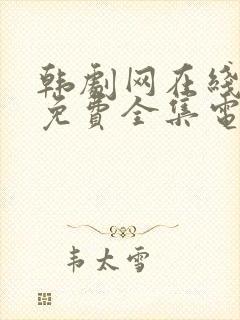 韩剧网在线
免費全集電
韦太雪